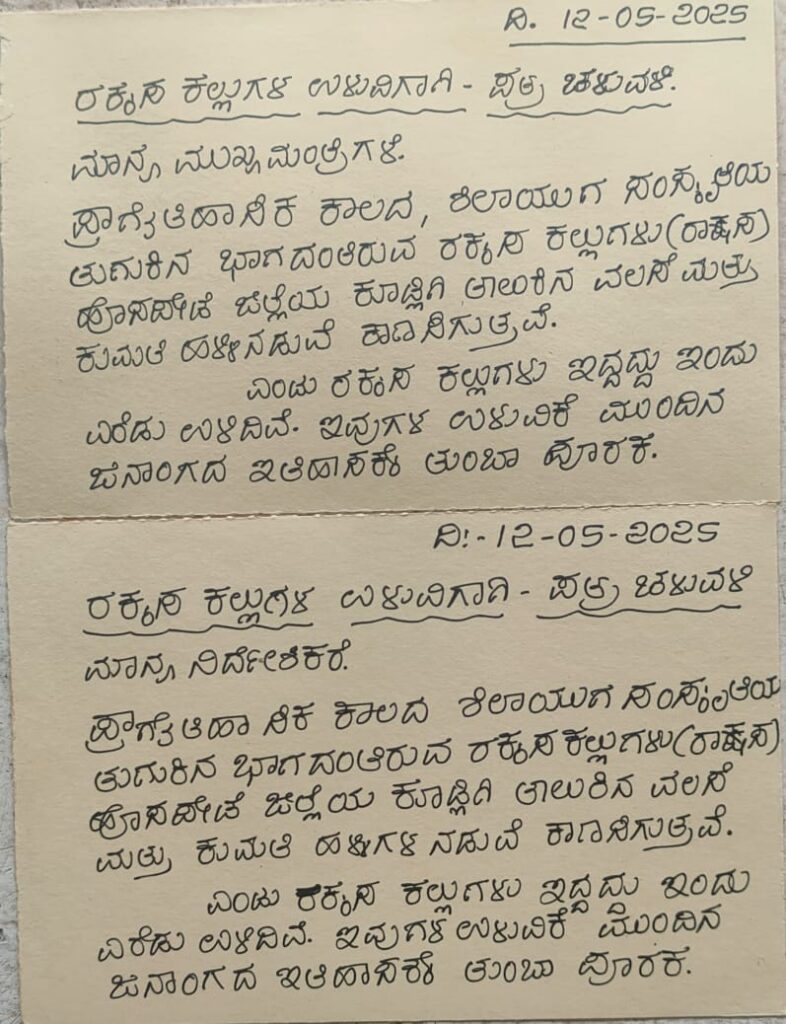 ದಿ. 12-05-2025
ರಕ್ಕಸ ಕಲ್ಲುಗಳ ಉಳುವಿಗಾಗಿ - ಪತ್ರ ಚಳುವಳಿ.
ಮಾನ್ಯ ಮುಖ್ಯಮಂತ್ರಿಗಳೆ.
ಪ್ರಾಗೈತಿಹಾಸಿಕ ಕಾಲದ, ಶಿಲಾಯುಗ ಸಂಸ್ಕೃತಿಯ
ತುಗುಕಿನ ಭಾಗದಂತಿರುವ ರಕ್ಕಸ ಕಲ್ಲುಗಳು(ರಾಕ್ಷಸ)
ಹೊಸಪೇಟೆ ಜಿಲ್ಲೆಯ ಕೂಡ್ಲಿಗಿ ತಾಲುಕಿನ ವಲಸೆ ಮತ್ತು
ಕುಮತಿ ಹಳ್ಳಿನಡುವೆ ಕಾಣಸಿಗುತ್ತವೆ.
ಎಂಟು ರಕ್ಕಸ ಕಲ್ಲುಗಳು ಇದ್ದದ್ದು ಇಂದು
ಎರೆಡು ಉಳಿದಿವೆ. ಇವುಗಳ ಉಳುವಿಕೆ ಮುಂದಿನ
ಜನಾಂಗದ ಇತಿಹಾಸಕ್ಕೆ ತುಂಬಾ ಪೂರಕ.
ದಿ:- 12-05-2025
ರಕ್ಕಸ ಕಲ್ಲುಗಳ ಉಳುವಿಗಾಗಿ - ಪತ್ರ ಚಳುವಳಿ
ಮಾನ್ಯ ನಿರ್ದೇಶಕರೆ.
ಪ್ರಾಗೈತಿಹಾಸಿಕ ಕಾಲದ ಶಿಲಾಯುಗ ಸಂಸ್ಕೃತಿಯ
ತುಗುಕಿನ ಭಾಗದಂತಿರುವ ರಕ್ಕಸ ಕಲ್ಲುಗಳು(ರಾಕ್ಷಸ)
ಹೊಸಪೇಟೆ ಜಿಲ್ಲೆಯ ಕೂಡ್ಲಿಗಿ ತಾಲುಕಿನ ವಲಸೆ
ಮತ್ತು ಕುಮತಿ ಹಳ್ಳಿಗಳ ನಡುವೆ ಕಾಣಸಿಗುತ್ತವೆ.
ಎಂಟು ರಕ್ಕಸ ಕಲ್ಲುಗಳು ಇದ್ದದ್ದು ಇಂದು
ಎರೆಡು ಉಳಿದಿವೆ. ಇವುಗಳ ಉಳುವಿಕೆ ಮುಂದಿನ
ಜನಾಂಗದ ಇತಿಹಾಸಕ್ಕೆ ತುಂಬಾ ಪೂರಕ.